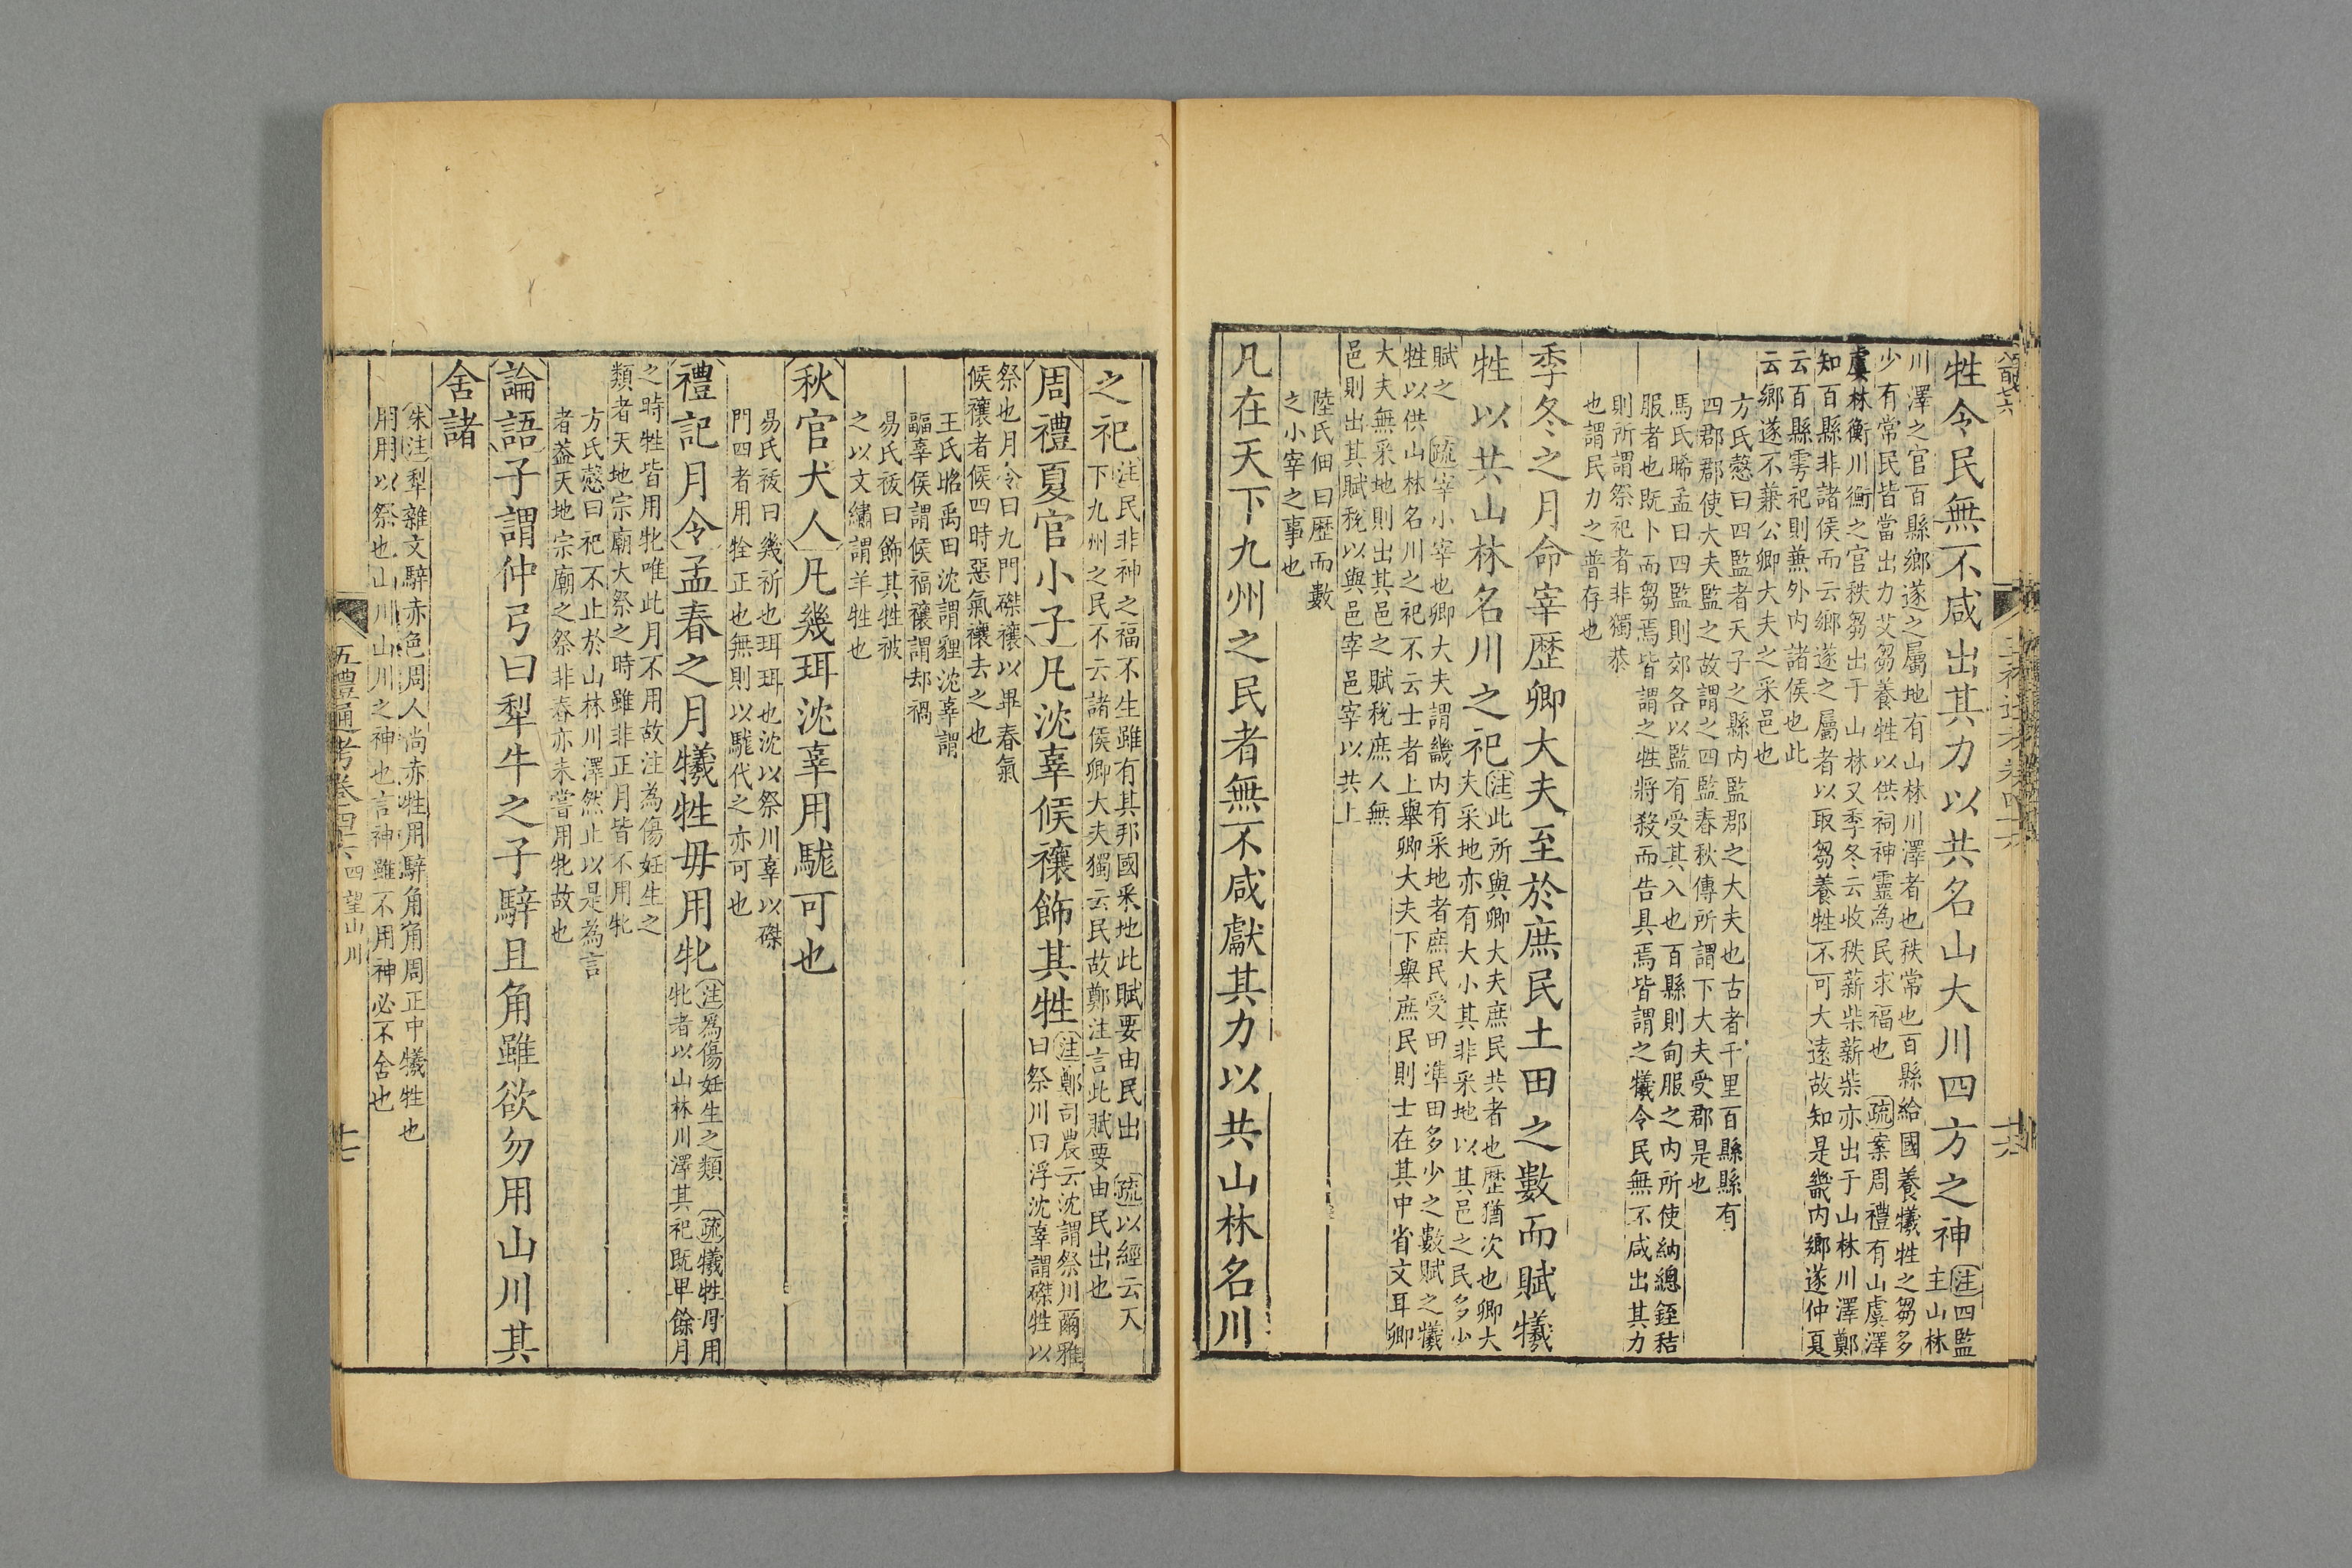 牲令民無不咸出其力以共名山大川四方之神注四監
主山林
川澤之官百縣鄉遂之屬地有山林川澤者也秩常也百縣給國養犧牲之芻多
少有常民皆當出力艾芻養牲以供祠神靈為民求福也 疏案周禮有山虞澤
虞林衡川衡之官秩芻出于山林又季冬云收秩薪柴薪柴亦出于山林川澤鄭
知百縣非諸侯而云鄉遂之屬者以取芻養牲不可大遠故知是畿內鄉遂仲夏
云百縣雩祀則兼外內諸侯也此
云鄉遂不兼公卿大夫之采邑也
方氏慤曰四監者天子之縣內監郡之大夫也古者千里百縣縣有
四郡郡使大夫監之故謂之四監春秋傳所謂下大夫受郡是也
馬氏晞孟曰四監則郊各以監有受其入也百縣則甸服之內所使納總銍秸
服者也既卜而芻焉皆謂之牲將殺而告具焉皆謂之犧令民無不咸出其力
則所謂祭祀者非獨恭
也謂民力之普存也
季冬之月命宰歷卿大夫至於庶民土田之數而賦犧
牲以共山林名川之祀注此所與卿大夫庶民共者也歷猶次也卿大
夫采地亦有大小其非采地以其邑之民多少
賦之 疏宰小宰也卿大夫謂畿內有采地者庶民受田準田多少之數賦之犧
牲以供山林名川之祀不云士者上舉卿大夫下舉庶民則士在其中省文耳卿
大夫無采地則出其邑之賦稅庶人無
邑則出其賦稅以與邑宰邑宰以共上
陸氏佃曰歷而數
之小宰之事也
凡在天下九州之民者無不咸獻其力以共山林名川
之祀注民非神之福不生雖有其邦國采地此賦要由民出 疏以經云天
下九州之民不云諸侯卿大夫獨云民故鄭注言此賦要由民出也
周禮夏官小子凡沈辜候禳飾其牲注鄭司農云沈謂祭川爾雅
曰祭川曰浮沈辜謂磔牲以
祭也月令曰九門磔禳以畢春氣
候禳者候四時惡氣禳去之也
王氏昭禹曰沈謂貍沈辜謂
疈辜侯謂候福禳謂却禍
易氏祓曰飾其牲被
之以文繡謂羊牲也
秋官犬人凡幾珥沈辜用駹可也
易氏祓曰幾祈也珥珥也沈以祭川辜以磔
門四者用牷正也無則以駹代之亦可也
禮記月令孟春之月犧牲毋用牝注為傷妊生之類 疏犧牲毋用
牝者以山林川澤其祀既卑餘月
之時牲皆用牝唯此月不用故注為傷妊生之
類者天地宗廟大祭之時雖非正月皆不用牝
方氏慤曰祀不止於山林川澤然止以是為言
者蓋天地宗廟之祭非春亦未嘗用牝故也
論語子謂仲弓曰犁牛之子騂且角雖欲勿用山川其
舍諸
朱注犁雜文騂赤色周人尚赤牲用騂角角周正中犧牲也
用用以祭也山川山川之神也言神雖不用神必不舍也
五禮通考卷四十六 四望山川
十七